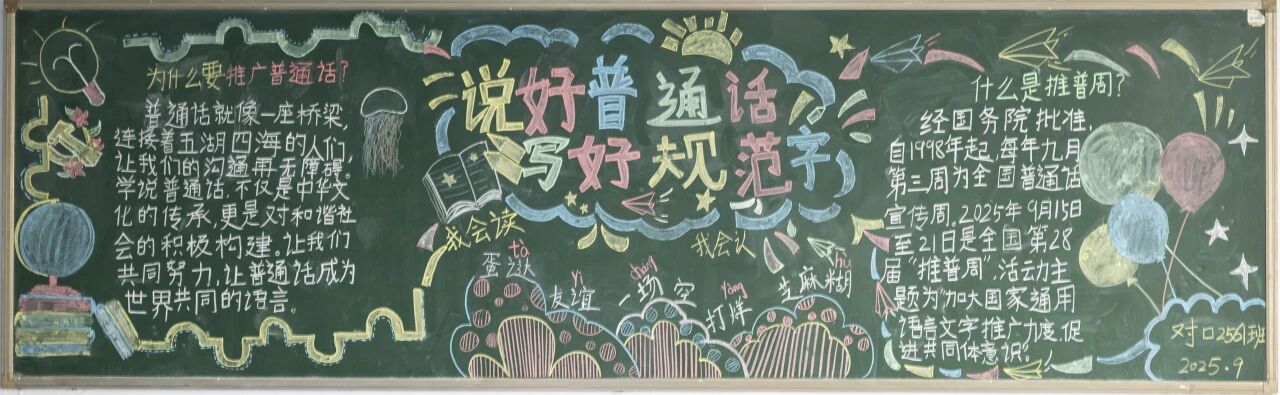 为什么要推广普通话？
普通话就像一座桥梁，
连接着五湖四海的人们，
让我们的沟通再无障碍。
学说普通话，不仅是中华文
化的传承，更是对和谐社
会的积极构建。让我们
共同努力，让普通话成为
世界共同的语言。
说好普通话
写好规范字
我会读
我会认
tà
蛋挞
yì
友谊
cháng
一场空
yàng
打烊
hù
芝麻糊
什么是推普周？
经国务院批准，
自1998年起，每年九月
第三周为全国普通话
宣传周。2025年9月15日
至21日是全国第28
届“推普周”，活动主
题为“加大国家通用
语言文字推广力度，促
进共同体意识”。
对口2561班
2025.9